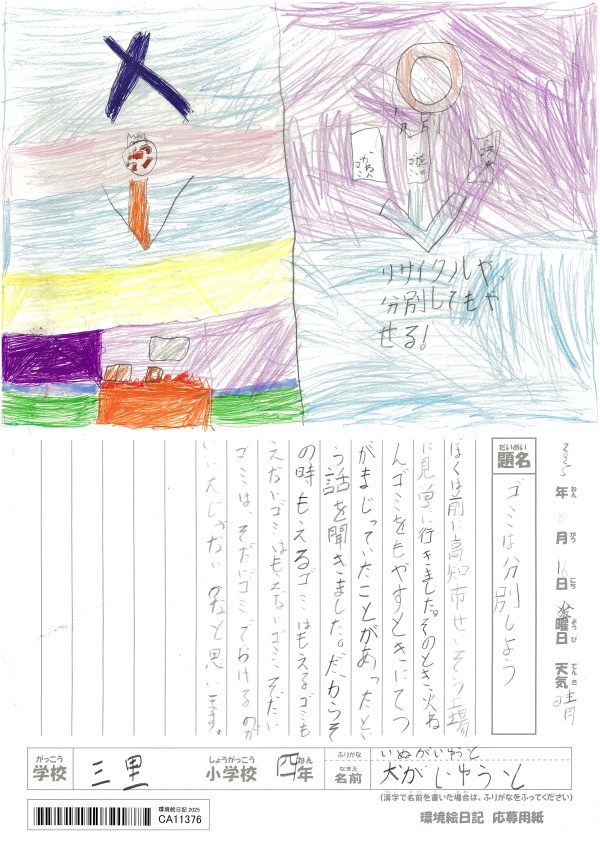 リサイクルや
分別してもや
せる!
2025年6月16日火曜日 天気 晴
ねん がつ にち ようび てんき
だいめい
題名
ゴミは分別しよう
ぼくは前に高知市せいそう工場
に見学に行きました。そのとき、火ね
んゴミをもやすときにてつ
がまじっていたことがあったとい
う話を聞きました。だからそ
の時もえるゴミはもえるゴミも
えないゴミはもえないゴミ、そだい
ゴミは、そだいゴミでわけるのが
いいんじゃないかなと思います。
がっこう
学校
三里
しょうがっこう
小学校
四
ねん
年
ふりがな
いぬがいゆうと
なまえ
名前
犬がいゆうと
(漢字で名前を書いた場合は、ふりがなをふってください)
環境絵日記 2025
CA11376
環境絵日記 応募用紙